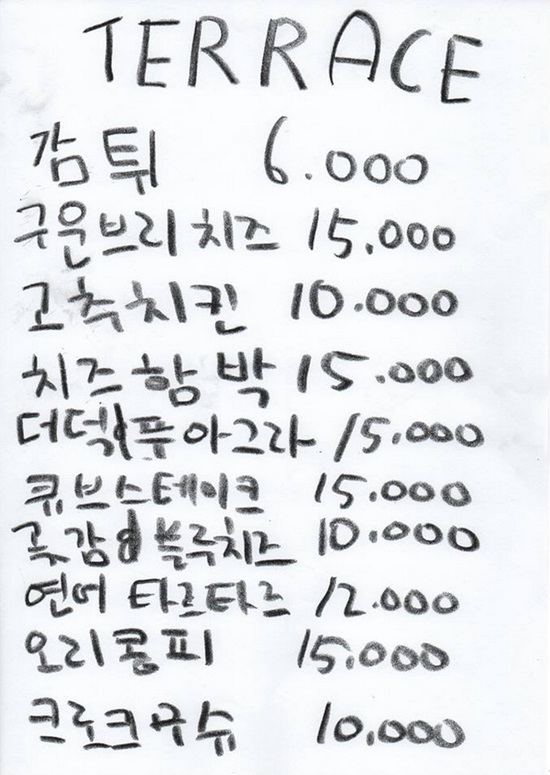 TERRACE
감튀 6.000
구운브리치즈 15.000
고추치킨 10.000
치즈함박 15.000
더덕&푸아그라 15.000
큐브스테이크 15.000
곶감&블루치즈 10.000
연어 타르타르 12.000
오리콩피 15.000
크로크무슈 10,000